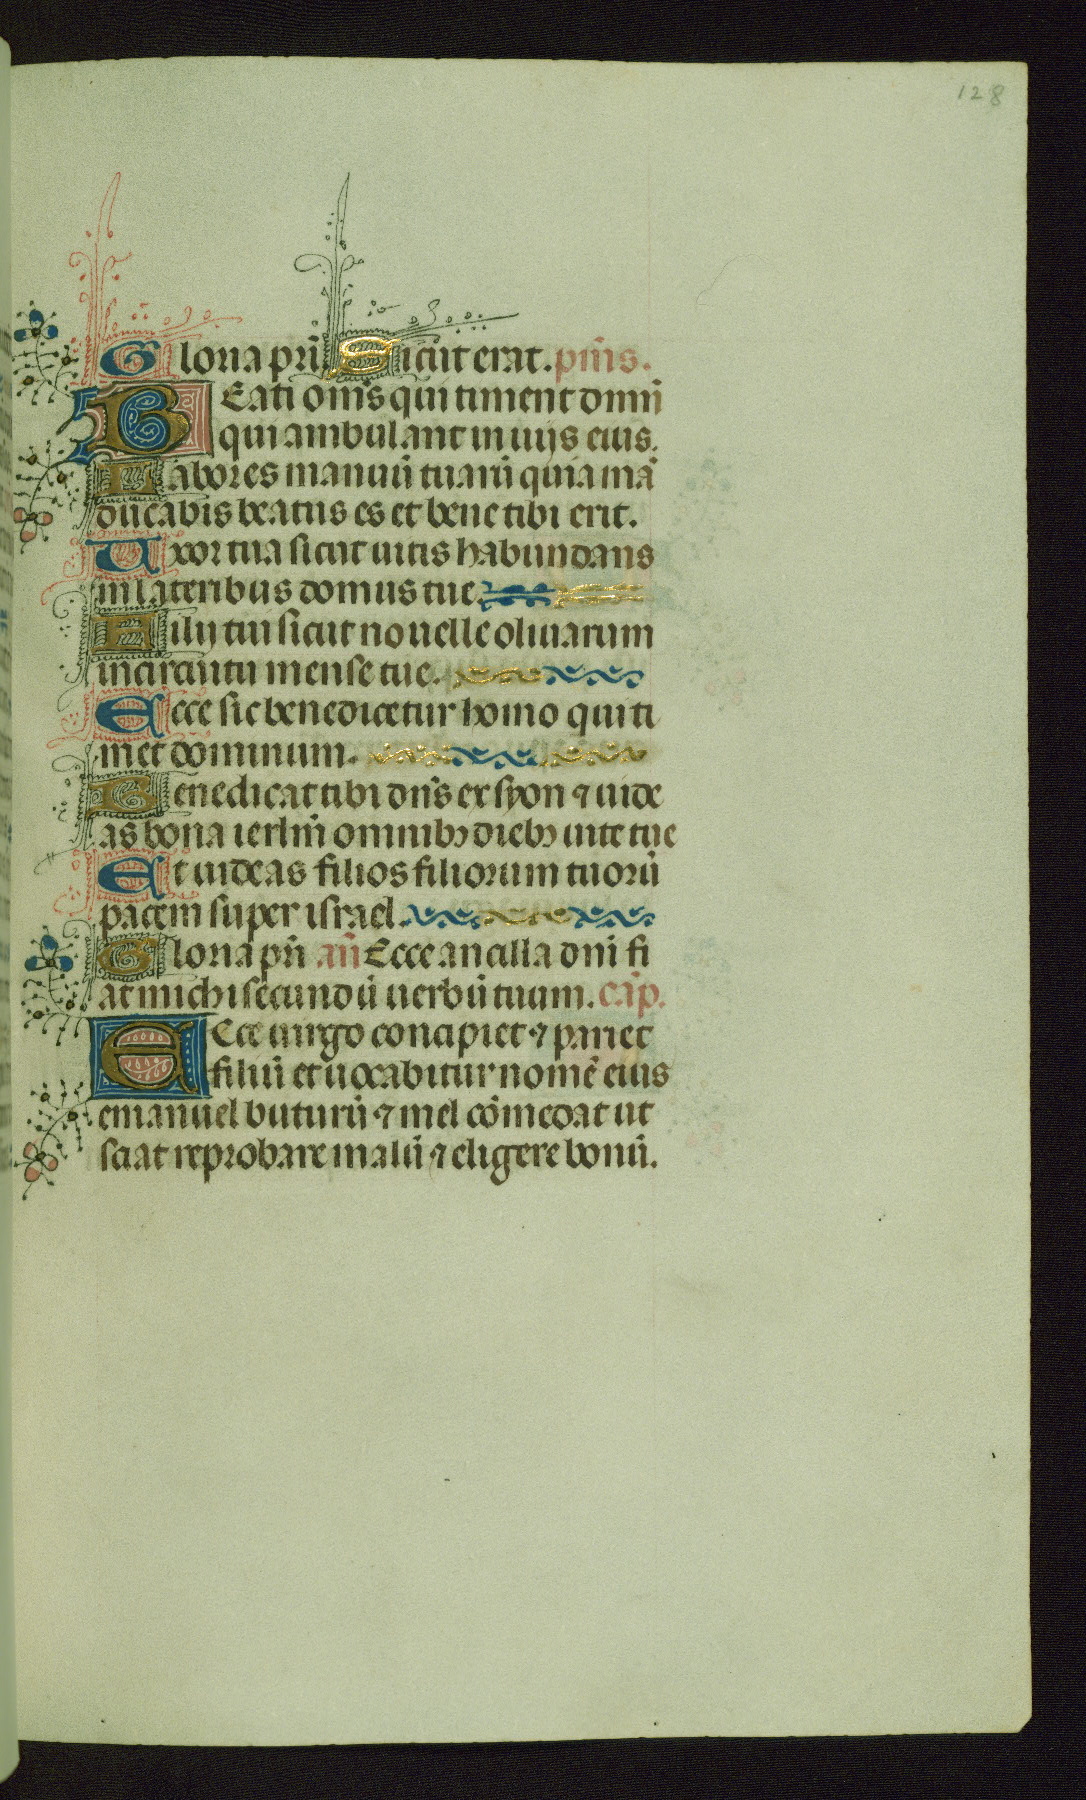 128
Gloria pr̄i Sicut erat. pm̄s.
BEati om̄s qui timent dnm̄
qui ambulant in uijs eius.
Labores manuū tuarū quia mā
ducabis beatus es et bene tibi erit.
Uxor tua sicut uitis habundans
in lateribus domus tue.
Filij tui sicut nouelle oliuarum
in circuitu mense tue.
Ecce sic benedicetur homo qui ti
met dominum.
Benedicat tibi dn̄s ex syon ⁊ uide
as bona ierlm̄ omnibꝫ diebꝫ uite tue
Et uideas filios filiorum tuorū
pacem super israel.
Gloria pr̄i an̄ Ecce ancilla dn̄i fi
at michi secundū uerbū tuum. cap̄.
EEcce uirgo concipiet ⁊ pariet
filiū et uocabitur nomē eius
emanuel buturū ⁊ mel cōmedat ut
sciat reprobare malū ⁊ eligere bonū.